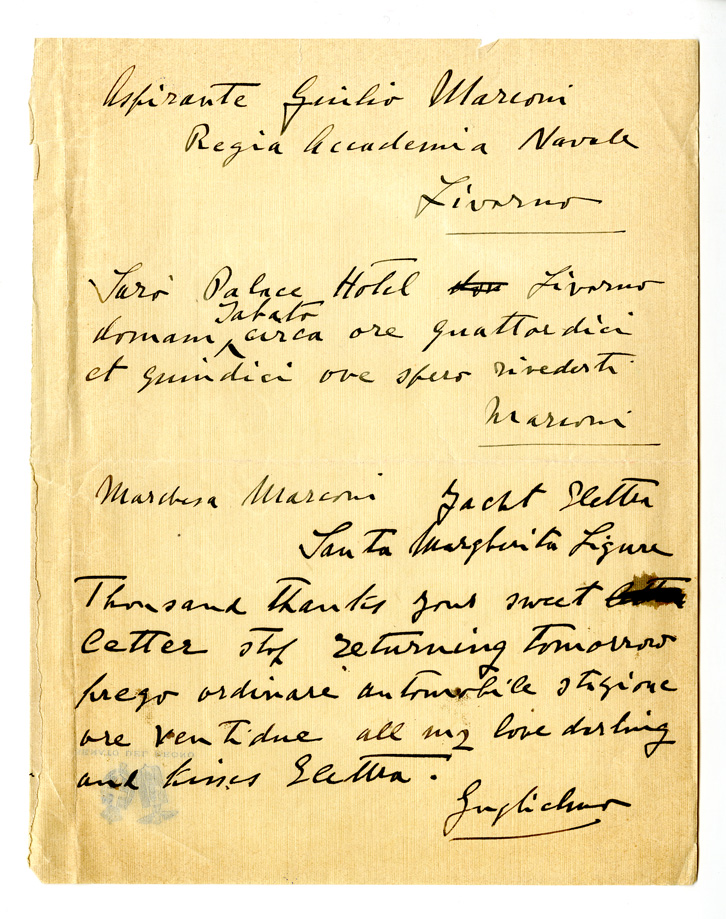 Aspirante Giulio Marconi
Regia Accademia Navale
Livorno
Sarò Palace Hotel Livorno
Sabato
domani circa ore quattordici
et quindici ove spero rivederti
Marconi
Marchesa Marconi Yacht Elettra
Santa Margherita Ligure
Thousand thanks your sweet
letter stop returning tomorrow
prego ordinare automobile stazione
ore ventidue all my love darling
and kisses Elettra.
Guglielmo